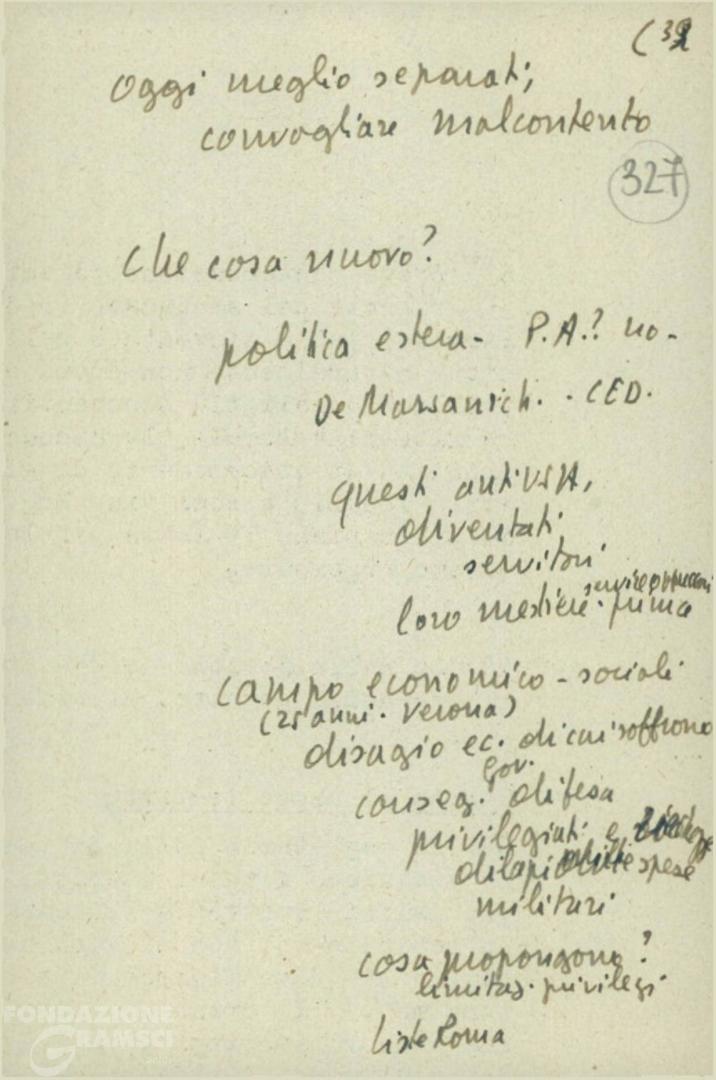 (32
oggi meglio separati,
convogliare malcontento
327
che cosa nuovo?
politica estera - P.A.? no -
De Marsanich. - CED.
questi antiUSA,
diventati
servitori
servire oppressori
loro mestiere. prima
campo economico - sociali
(25 anni. Verona)
disagio ec. di cui soffrono
gov.
conseg. difesa
privilegiati e
spese
militari
cosa propongono?
limitaz. privilegi
liste Roma
FONDAZIONE
GRAMSCI